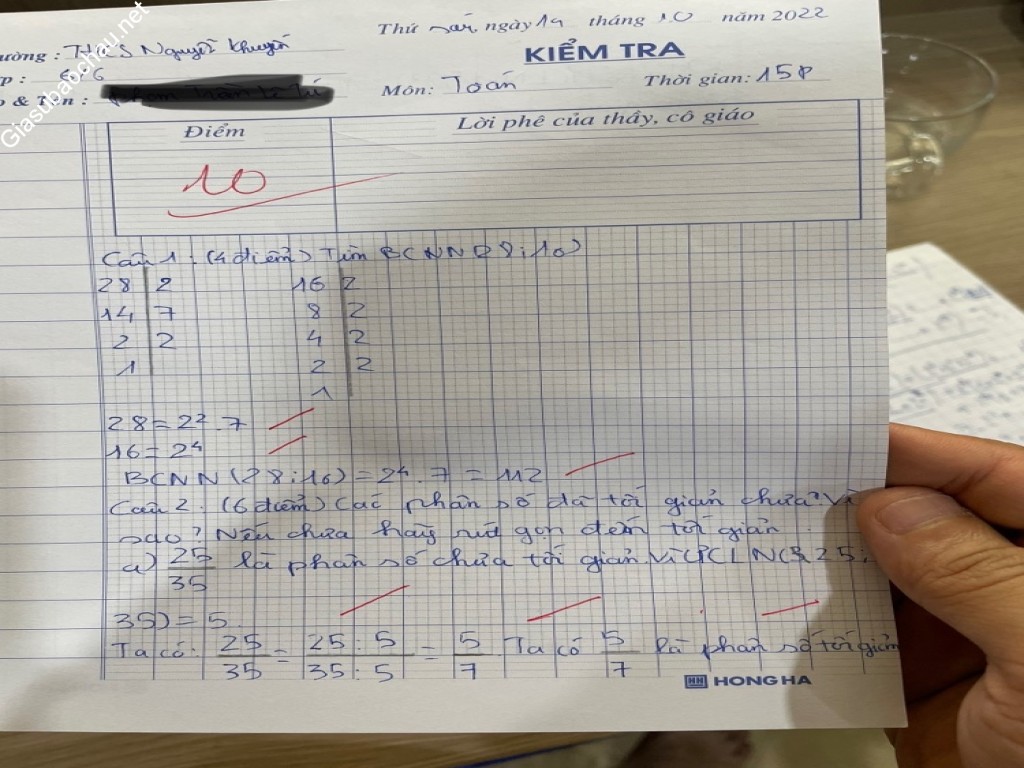 Giasubaochau.net
Thứ sáu ngày 14 tháng 10 năm 2022
ường : THCS Nguyễn Khuyến
KIỂM TRA
p : 6/6
& Tên :
Môn: Toán Thời gian: 15P
Điểm
Lời phê của thầy, cô giáo
10
Câu 1: (4 điểm) Tìm BCNN(28;16)
28 2 16 2
14 7 8 2
2 2 4 2
1 2 2
1
28 = 2². 7
16 = 2⁴
BCNN (28;16) = 2⁴. 7 = 112
Câu 2: (6 điểm) Các phân số đã tối giản chưa? Vì
sao? Nếu chưa hãy rút gọn đến tối giản
a) 25/35 là phân số chưa tối giản. Vì ƯCLN(25;
35) = 5.
Ta có: 25/35 = 25 : 5/35 : 5 = 5/7 Ta có 5/7 là phân số tối giản
HH HONG HA